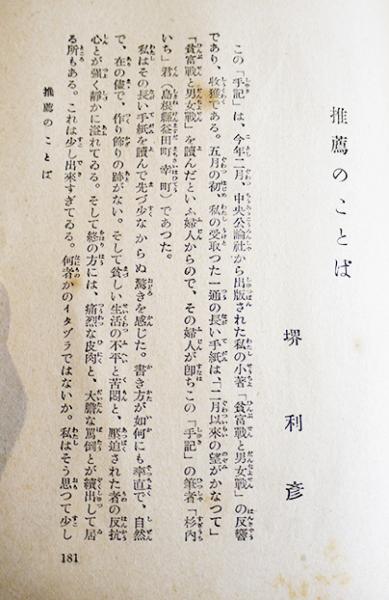 推薦のことば
堺利彦
この『手記』は、今年二月、中央公論社から出版された私の小著『貧富戰と男女戰』の反響
であり、收獲である。五月の初、私の受取つた一通の長い手紙は、「二月以來の望がかなつて」
『貧富戰と男女戰』を讀んだといふ婦人からので、その婦人が即ちこの『手記』の筆者「杉内
いち」君（島根縣益田町幸町）であつた。
私はその長い手紙を讀んで先づ少なからぬ驚きを感じた。書き方が如何にも率直で、自然
で、在の儘で、作り飾りの跡がない。そして貧しい生活の不平と苦悶と、壓迫された者の反抗
心とが强く靜かに溢れてゐる。そして終の方には、痛烈な皮肉と、大膽な罵倒とが續出して居
る所もある。これは少し出來すぎてゐる。何者かのイタヅラではないか。私はそう思つて少し
推薦のことば
181